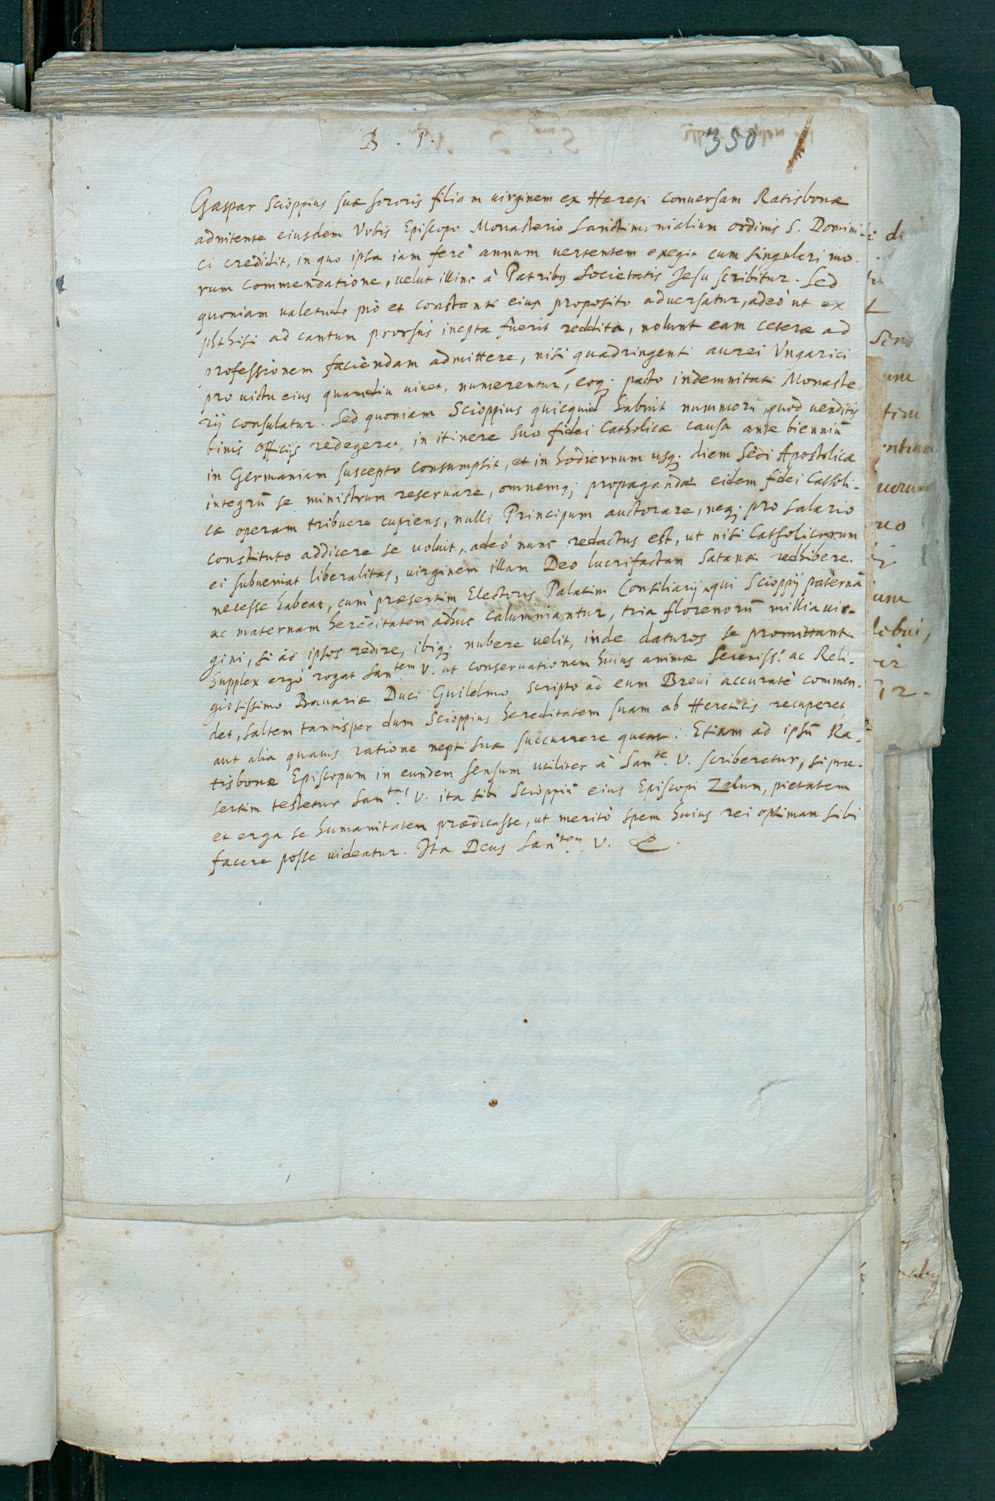 B. P.
350
Gaspar Scioppius suæ sororis filiam uirginem ex Heresi conuersam Ratisbonæ
adnitente eiusdem Vrbis Episcopo Monasterio Sanctimonialium ordinis S. Domini-
ci credidit, in quo ipsa iam ferè annum uertentem exegit cum singulari mo-
rum commendatione, uelut illinc à Patribus Societatis Jesu scribitur. Sed
quoniam ualetudo pio et constanti eius proposito aduersatur, adeò ut ex
phthisi ad cantum prorsus inepta fuerit reddita, nolunt eam ceteræ ad
professionem faciendam admittere, nisi quadringenti aurei Vngarici
pro uictu eius quamdiu uiuet, numerentur, eoq; pacto indemnitati Monaste
rij consulatur. Sed quoniam Scioppius quicquid habuit nummorũ quod uenditis
binis officijs redegerat, in itinere suo fidei Catholicæ causa ante bienniũ
in Germaniam suscepto consumpsit, et in hodiernum usq; diem Sedi Apostolicæ
integrũ se ministrum reseruare, omnemq; propagandæ eidem fidei Catholi-
cæ operam tribuere cupiens, nulli Principum auctorare, neq; pro salario
constituto addicere se uoluit, adeò nunc redactus est, ut nisi Catholicorum
ei subueniat liberalitas, uirginem illam Deo lucrifactam Satanæ redhibere
necesse habeat, cum præsertim Electoris Palatini Consiliarij, qui Scioppij paternã
ac maternam hereditatem adhuc calumniantur, tria florenorũ millia uir-
gini, si ad ipsos redire, ibiq; nubere uelit, inde daturos se promittant
Supplex ergò rogat Santem V. ut conseruationem huius animæ Sereniss.o ac Reli-
giosissimo Bauariæ Duci Guilelmo scripto ad eum Breui accuratè commen-
det, saltem tantisper dum Scioppius hereditatem suam ab Hereticis recuperet,
aut alia quauis ratione nepti suæ succurrere queat: Etiam ad ipsũ Ra-
tisbonæ Episcopum in eundem sensum utiliter à Sante V. scriberetur, si præ-
sertim testetur Santas V. ita sibi Scioppiũ eius Episcopi Zelum, pietatem
et erga se humanitatem prædicasse, ut meritò spem huius rei optimam sibi
facere posse uideatur. Ita Deus Santem V. &.